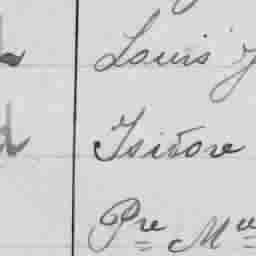 Louis J
Isidore
Pre Mve